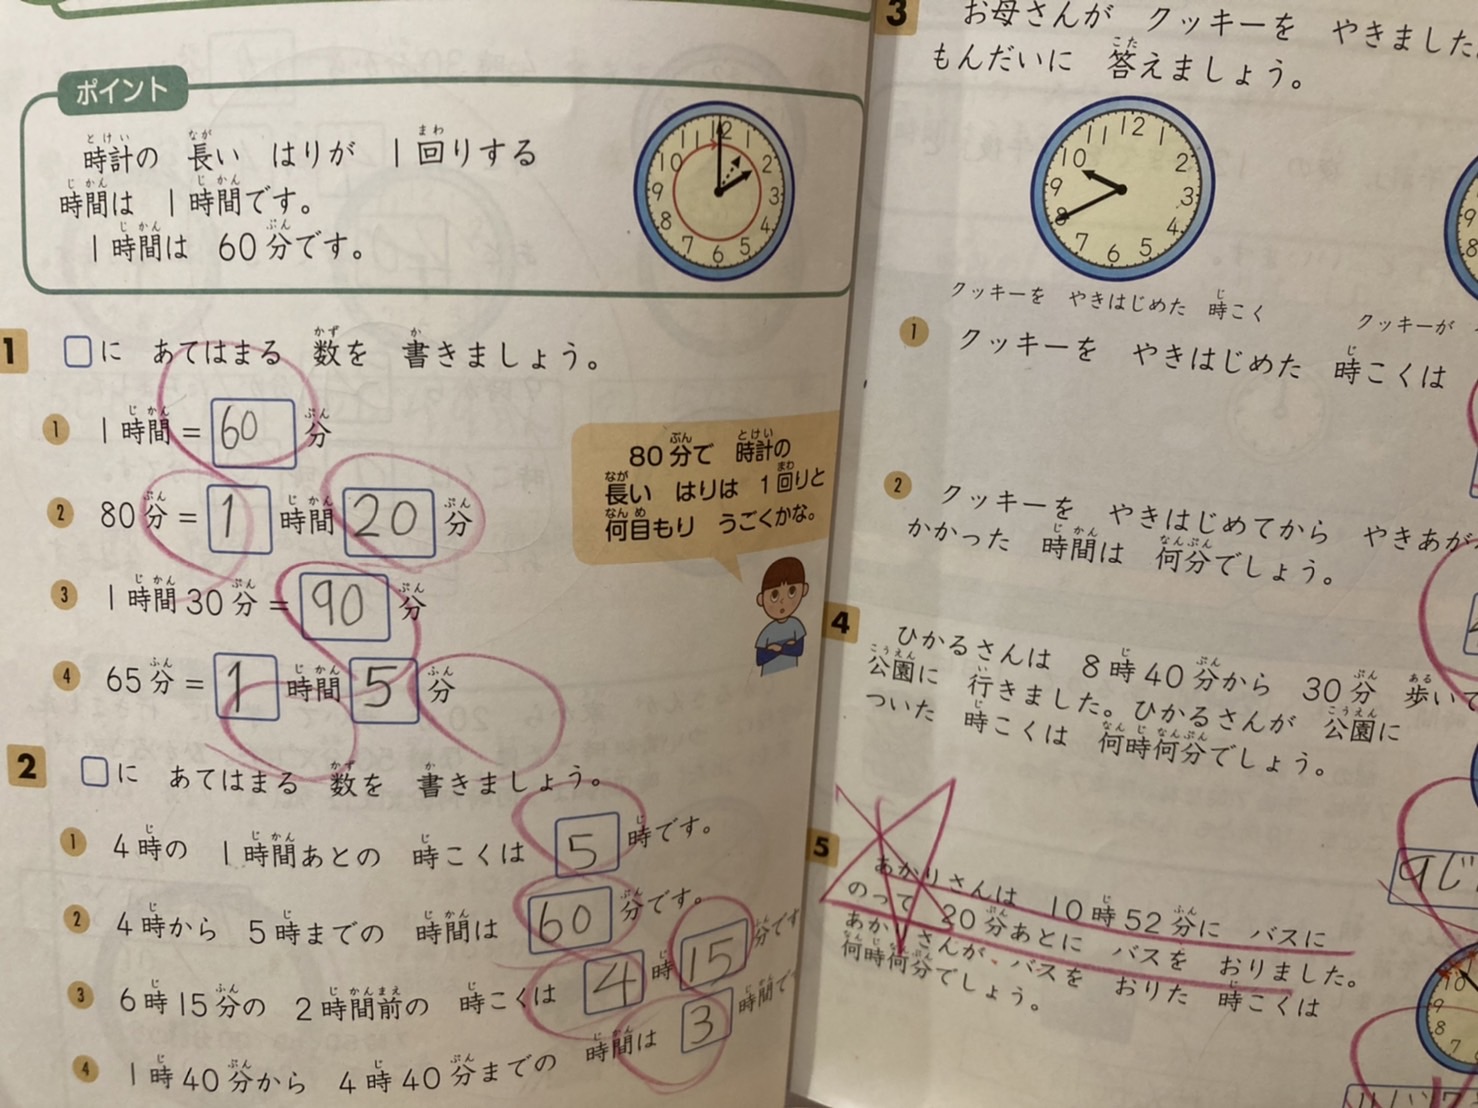 ポイント
時計の 長い はりが 1回りする
時間は 1時間です。
1時間は 60分です。
1 □に あてはまる 数を 書きましょう。
1 1時間=60分
2 80分=1時間20分
3 1時間30分=90分
4 65分=1時間5分
80分で 時計の
長い はりは 1回りと
何目もり うごくかな。
2 □に あてはまる 数を 書きましょう。
1 4時の 1時間あとの 時こくは 5時です。
2 4時から 5時までの 時間は 60分です。
3 6時15分の 2時間前の 時こくは 4時15分です
4 1時40分から 4時40分までの 時間は 3時間で
3 お母さんが クッキーを やきました
もんだいに 答えましょう。
クッキーを やきはじめた 時こく
クッキーが
1 クッキーを やきはじめた 時こくは
2 クッキーを やきはじめてから やきあが
かかった 時間は 何分でしょう。
4 ひかるさんは 8時40分から 30分 歩いて
公園に 行きました。ひかるさんが 公園に
ついた 時こくは 何時何分でしょう。
9じ
5 あかりさんは 10時52分に バスに
のって 20分あとに バスを おりました。
あかりさんが、バスを おりた 時こくは
何時何分でしょう。